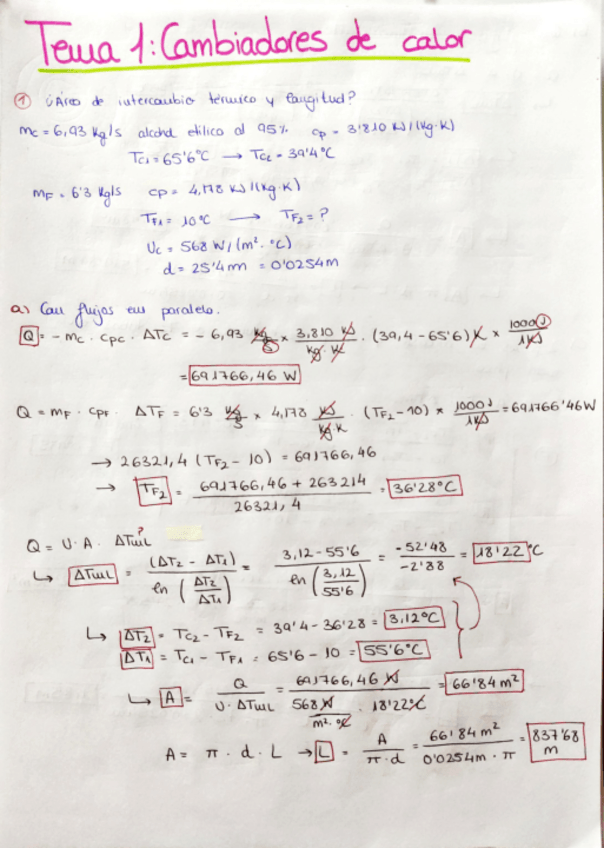 Tema 1: Cambiadores de calor
① ¿Área de intercambio térmico y longitud?
mc = 6,93 Kg/s alcohol etílico al 95% cp = 3'810 KJ/(Kg·K)
Tc1 = 65'6°C → Tc2 = 39'4°C
mF = 6'3 Kg/s cp = 4,178 KJ/(Kg·K)
TF1 = 10°C → TF2 = ?
Uc = 568 W/(m²·°C)
d = 25'4mm = 0'0254m
a) Con flujos en paralelo.
Q = - mc · cpc · ΔTc = - 6,93 Kg/s × 3,810 KJ/Kg·K · (39,4 - 65'6) K × 1000J/1KJ
= 691766,46 W
Q = mF · cpF · ΔTF = 6'3 Kg/s × 4,178 KJ/Kg·K · (TF2 - 10) × 1000J/1KJ = 691766'46W
→ 26321,4 (TF2 - 10) = 691766,46
→ TF2 = 691766,46 + 263214 / 26321,4 = 36'28°C
Q = U · A · ΔTmL ?
↳ ΔTmL = (ΔT2 - ΔT1) / ln (ΔT2/ΔT1) = 3,12 - 55'6 / ln (3,12/55'6) = -52'48 / -2'88 = 18'22 °C
↳ ΔT2 = Tc2 - TF2 = 39'4 - 36'28 = 3,12°C
ΔT1 = Tc1 - TF1 = 65'6 - 10 = 55'6°C
↳ A = Q / U · ΔTmL = 691766,46 W / 568 W/m²·°C · 18'22°C = 66'84 m²
A = π · d · L → L = A / π·d = 66'84 m² / 0'0254m · π = 837'68 m